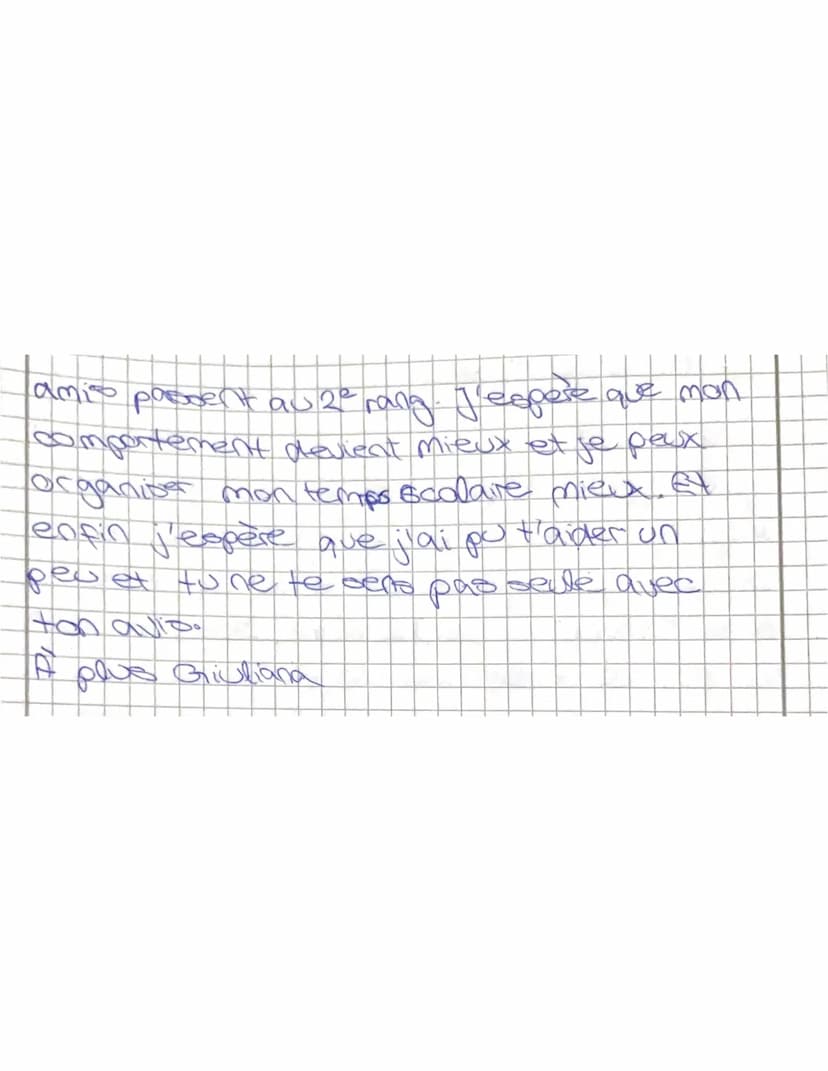 amis passent au 2e rang. J'espère que mon
comportement devient mieux et je peux
organiser mon temps scolaire mieux. Et
enfin j'espère que j'ai pu t'aider un
peu et tu ne te sens pas seule avec
ton avis.
À plus Giuliana